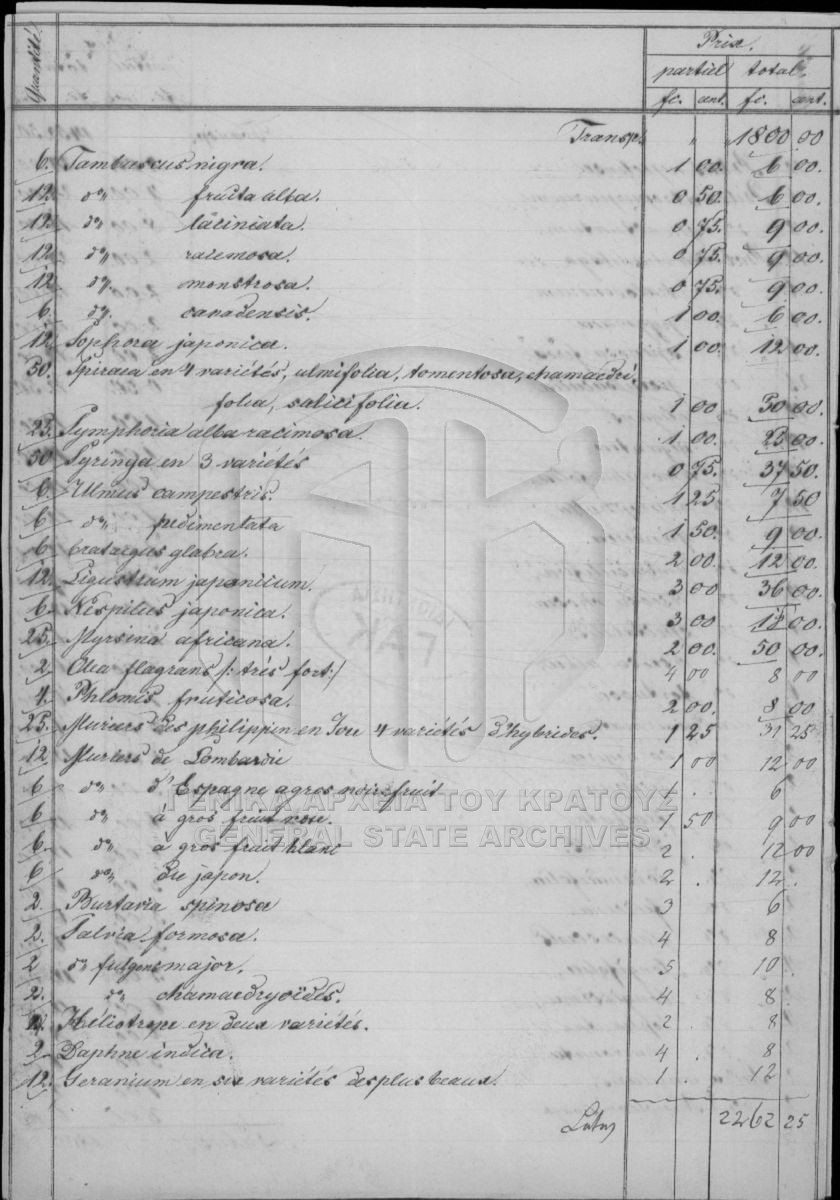 Quantité
Prix.
partiel total
fc. cent. fc. cent.
Transpt „ „ 1800 00
6. Tambuscus nigra. 1 00. 6 00.
12. do„ fructa alba. 0 50. 6 00.
12. do„ laciniata. 0 75. 9 00.
12 do„ racemosa. 0 75. 9 00.
12 do„. monstrosa. 0 75. 9 00.
6. do„. canadensis. 1 00. 6 00.
12 Sophora japonica. 1 00. 12 00.
50. Spiraea en 4 variétés, ulmifolia, tomentosa, chamaedri-
folia, salicifolia. 1 00 50 00.
25. Symphoria alba racimosa. 1 00. 25 00.
50 Syringa en 3 variétés 0 75. 37 50.
6. Ulmus campestris. 1 25 7 50
6 do„ pedimentata 1 50. 9 00.
6 Crataegus glabra. 2 00. 12 00.
12. Ligustrum japanicum. 3 00 36 00.
6. Nespilus japonica. 3 00 18 00.
25. Myrsina africana. 2 00. 50 00.
2. Olea flagrans /: trés fort:/ 4 00 8 00
4. Phlomis fruticosa. 2 00. 8 00
25. Muriers des philippin en 4 variétés d'hybrides. 1 25 31 25
12 Muriers de Lombardie 1 00 12 00
6 do„ d'Espagne agros noir fruit 1 . 6
6 do„ à gros fruit rose. 1 50 9 00
6. do„ à gros fruit blanc 2 . 12 00
6 do„ du japon. 2 . 12 .
2. Burtaria spinosa 3 6
2. Salvia formosa. 4 8
2 do„ fulgens major. 5 10 .
2. do„ chamaedryoïdes. 4 8 .
4. Héliotrope en deux variétés. 2 . 8
2 Daphne indica. 4 . 8
12. Geranium en six variétés des plus beaux. 1 . 12
Latus 2262 25
ΓΕΝΙΚΑ ΑΡΧΕΙΑ ΤΟΥ ΚΡΑΤΟΥΣ
GENERAL STATE ARCHIVES
ΓΑΚ